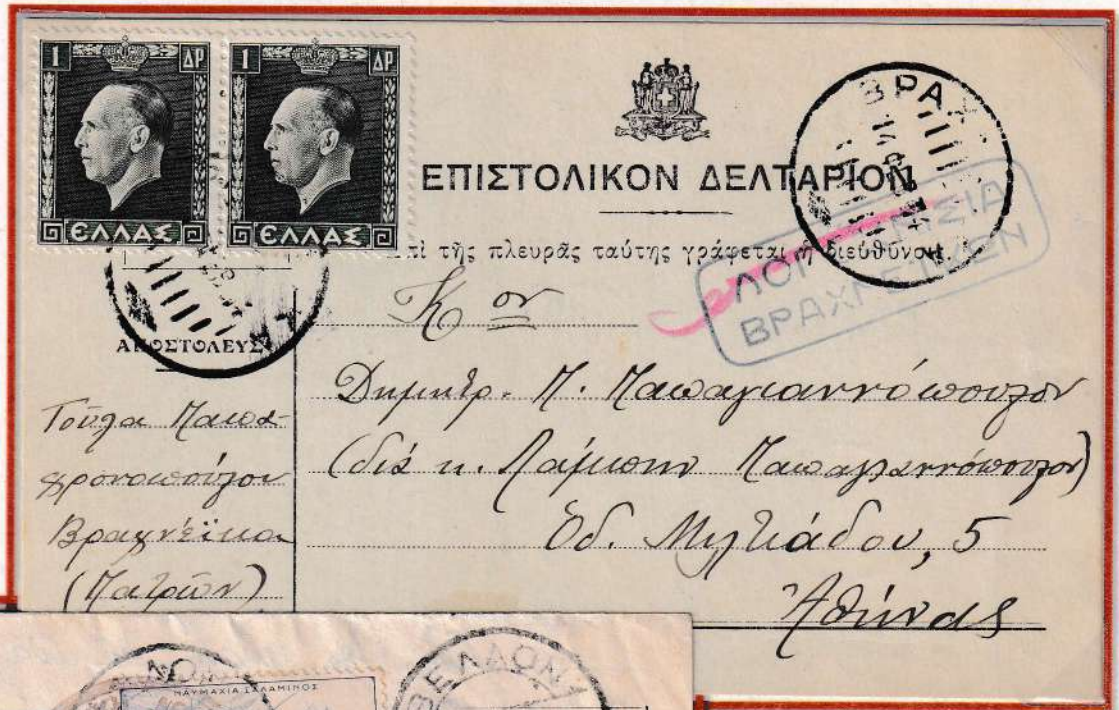 1 ΔΡ 1 ΔΡ
ΕΛΛΑΣ ΕΛΛΑΣ
ΕΠΙΣΤΟΛΙΚΟΝ ΔΕΛΤΑΡΙΟΝ
τῆς πλευρᾶς ταύτης γράφεται ἡ διεύθυνσι
ΒΡΑΧ
ΛΟΓ ΣΙΑ
ΒΡΑΧΝΕΙΚΩΝ
ΑΠΟΣΤΟΛΕΥΣ
Τούλα Παπα-
Βραχνέϊκα
(Πατρῶν)
Κον
Δημητρ. Π. Παπαγιαννόπουλον
(διὰ κ. Παπαγιαννόπουλον)
Ὁδ. Μιλτιάδου, 5
Ἀθήνας
ΝΑΥΜΑΧΙΑ ΣΑΛΑΜΙΝΟΣ
ΒΕΛΛΟΝ